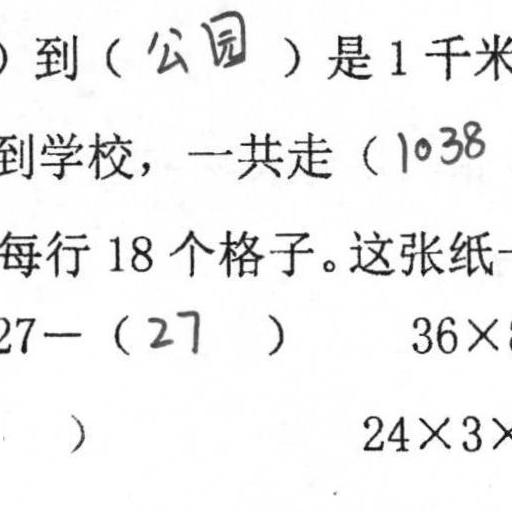 ）到（公园）是1千米
到学校，一共走（1038
每行18个格子。这张纸
27－（27　）　36×
）　24×3×